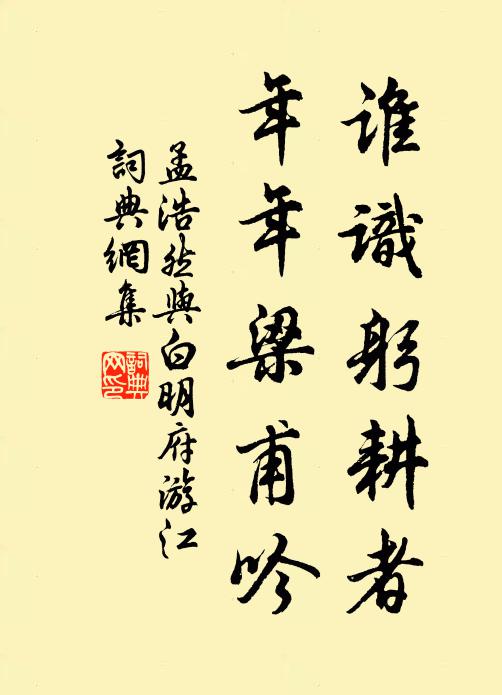 誰識躬耕者
年年梁甫吟
孟浩然與白明府游江
詞典網集
詞典
网印